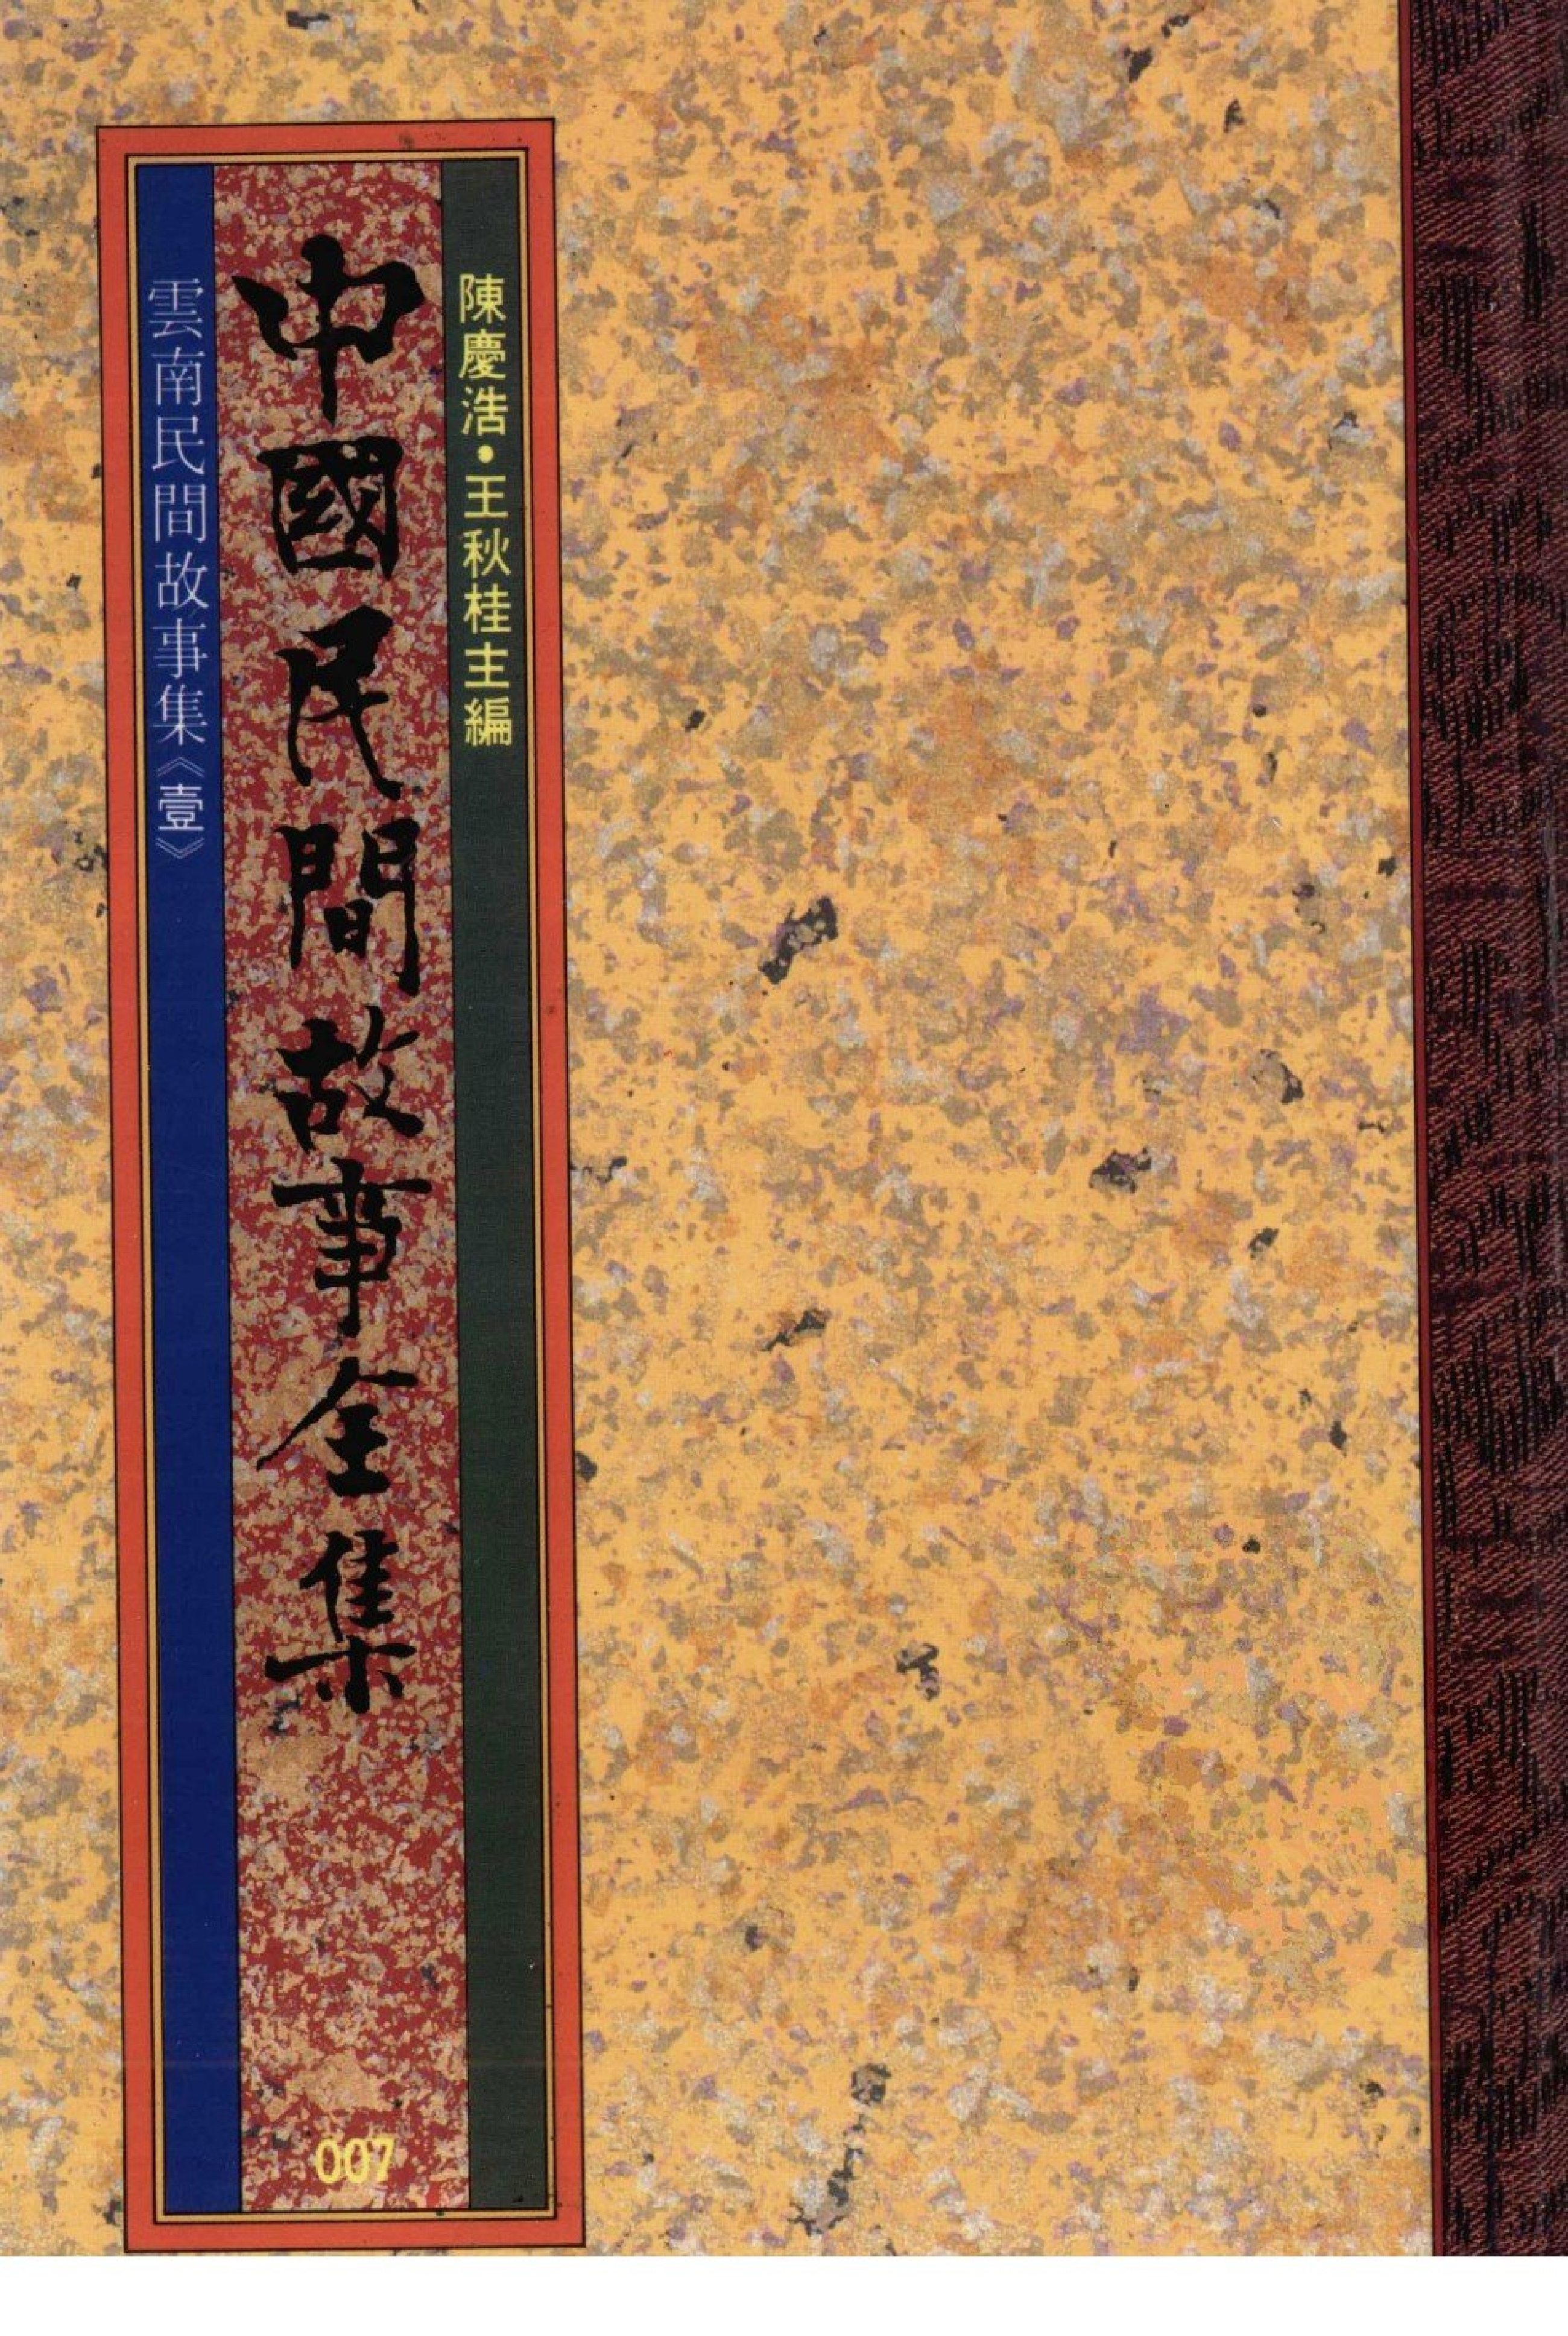 陳慶浩•王秋桂主編
中國民間故事全集
雲南民間故事集《壹》
007